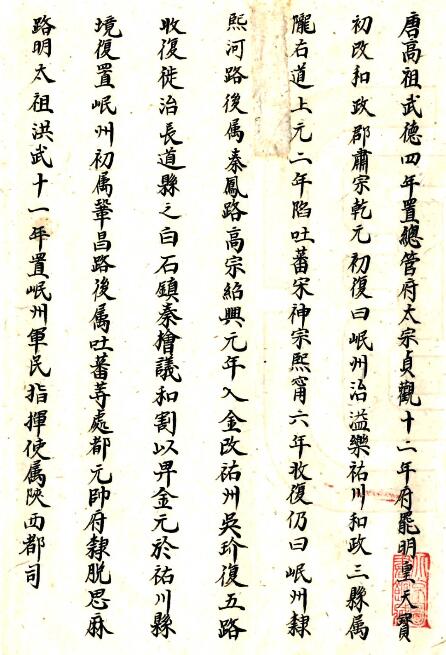 唐高祖武德四年置總管府太宗貞觀十二年府罷明皇天寶
初改和政郡肅宗乾元初復曰岷州治溢樂祐川和政三縣屬
隴右道上元二年陷吐蕃宋神宗熙甯六年收復仍曰岷州隸
熙河路後属秦鳳路高宗紹興元年入金改祐州吳玠復五路
收復徙治長道縣之白石鎮秦檜議和割以畀金元於祐川縣
境復置岷州初属鞏昌路後属吐蕃等處都元帥府隸脱思麻
路明太祖洪武十一年置岷州軍民指揮使属陝西都司